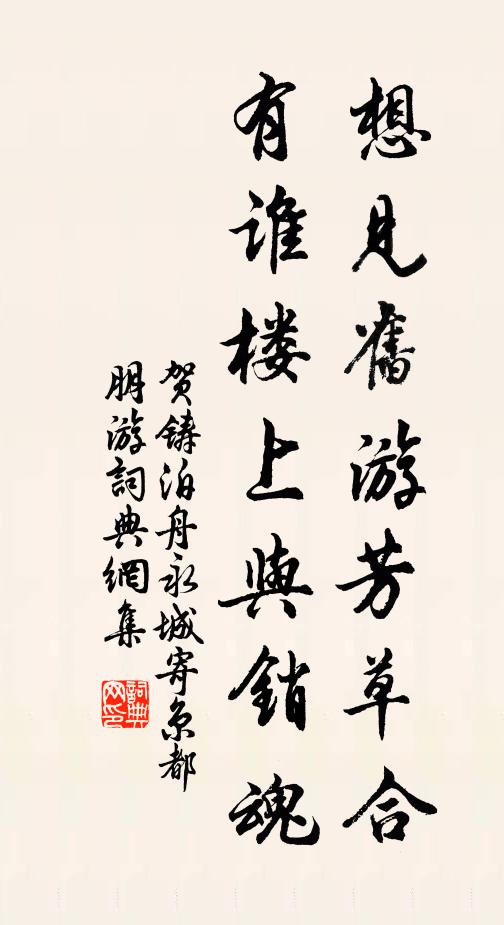 想見舊游芳草合
有誰楼上與銷魂
贺鑄泊舟永城寄京都
朋游詞典網集
詞典
网印